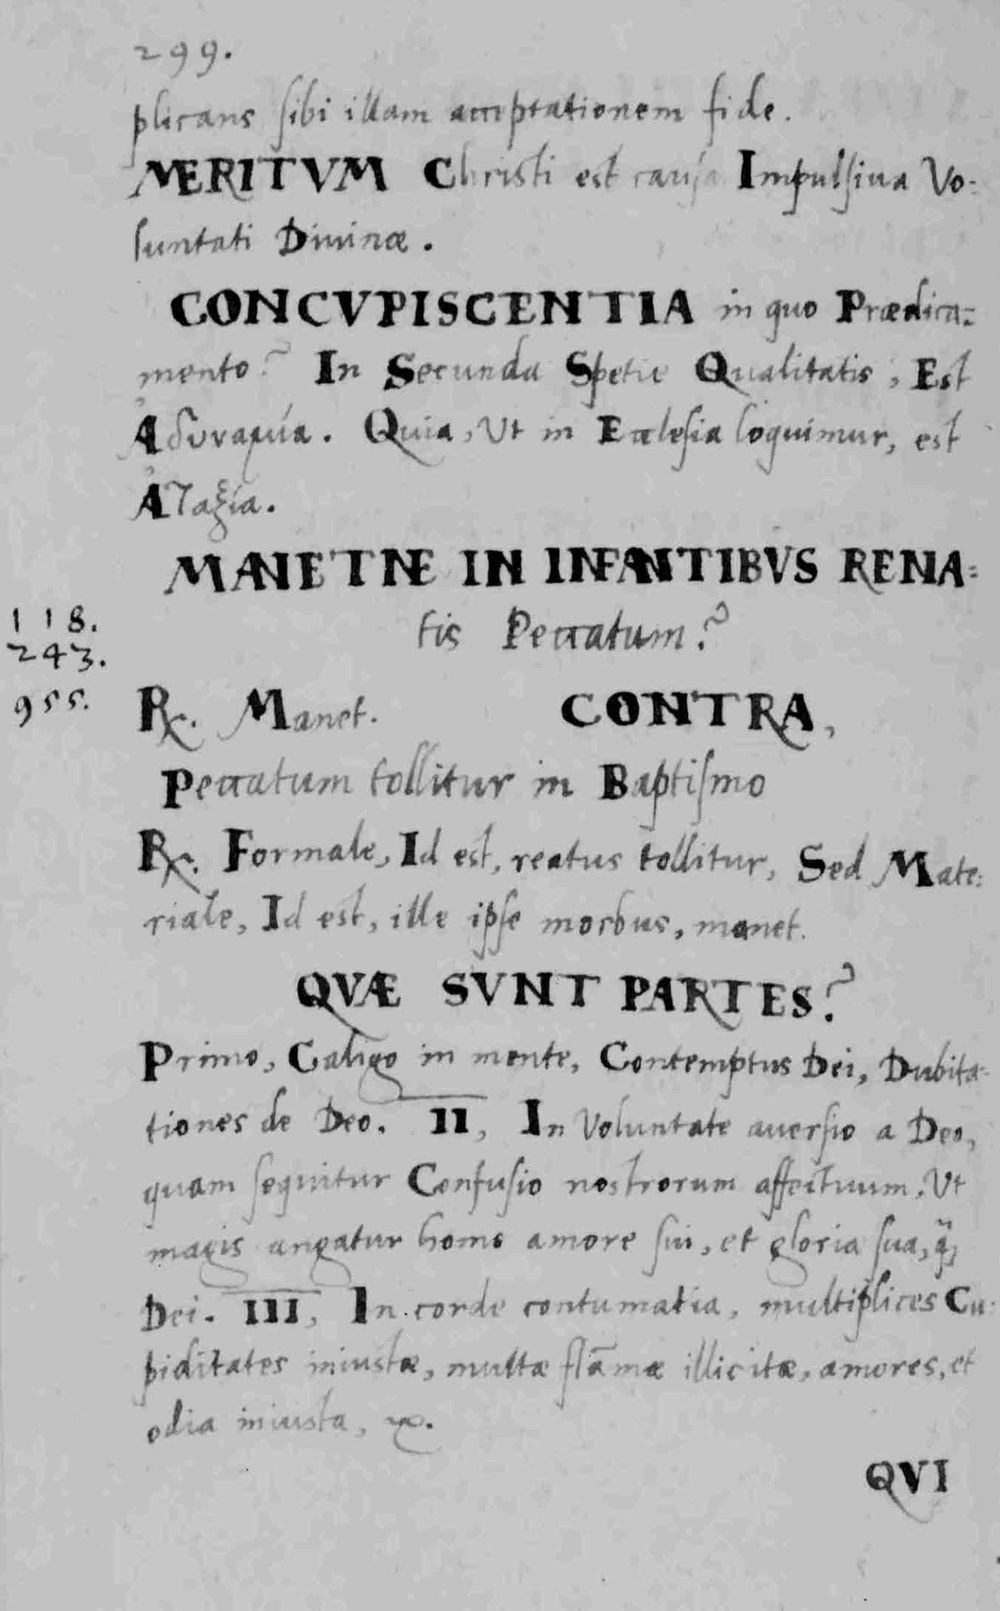 299.
plicans sibi illam acceptationem fide.
MERITVM Christi est causa Impulsiua Vo:
luntati Diuinæ.
CONCVPISCENTIA in quo Prædica:
mento? In Secunda Spetie Qualitatis, Est
Ἀδυναμία. Quia, Ut in Ecclesia loquimur, est
Ἀταξία.
MANETNE IN INFANTIBVS RENA:
tis Peccatum?
118.
243.
955.
℞. Manet. CONTRA,
Peccatum tollitur in Baptismo
℞. Formale, Id est, reatus tollitur, Sed Mate:
riale, Id est, ille ipse morbus, manet.
QVÆ SVNT PARTES?
Primo, Caligo in mente, Contemptus Dei, Dubita:
tiones de Deo. II, In Voluntate auersio a Deo,
quam sequitur Confusio nostrorum affectuum, Ut
magis angatur homo amore sui, et gloria sua, q̃,
Dei. III, In corde contumatia, multiplices Cu:
piditates iniustæ, multæ flãmæ illicitæ, amores, et
odia iniusta, &c.
QVI